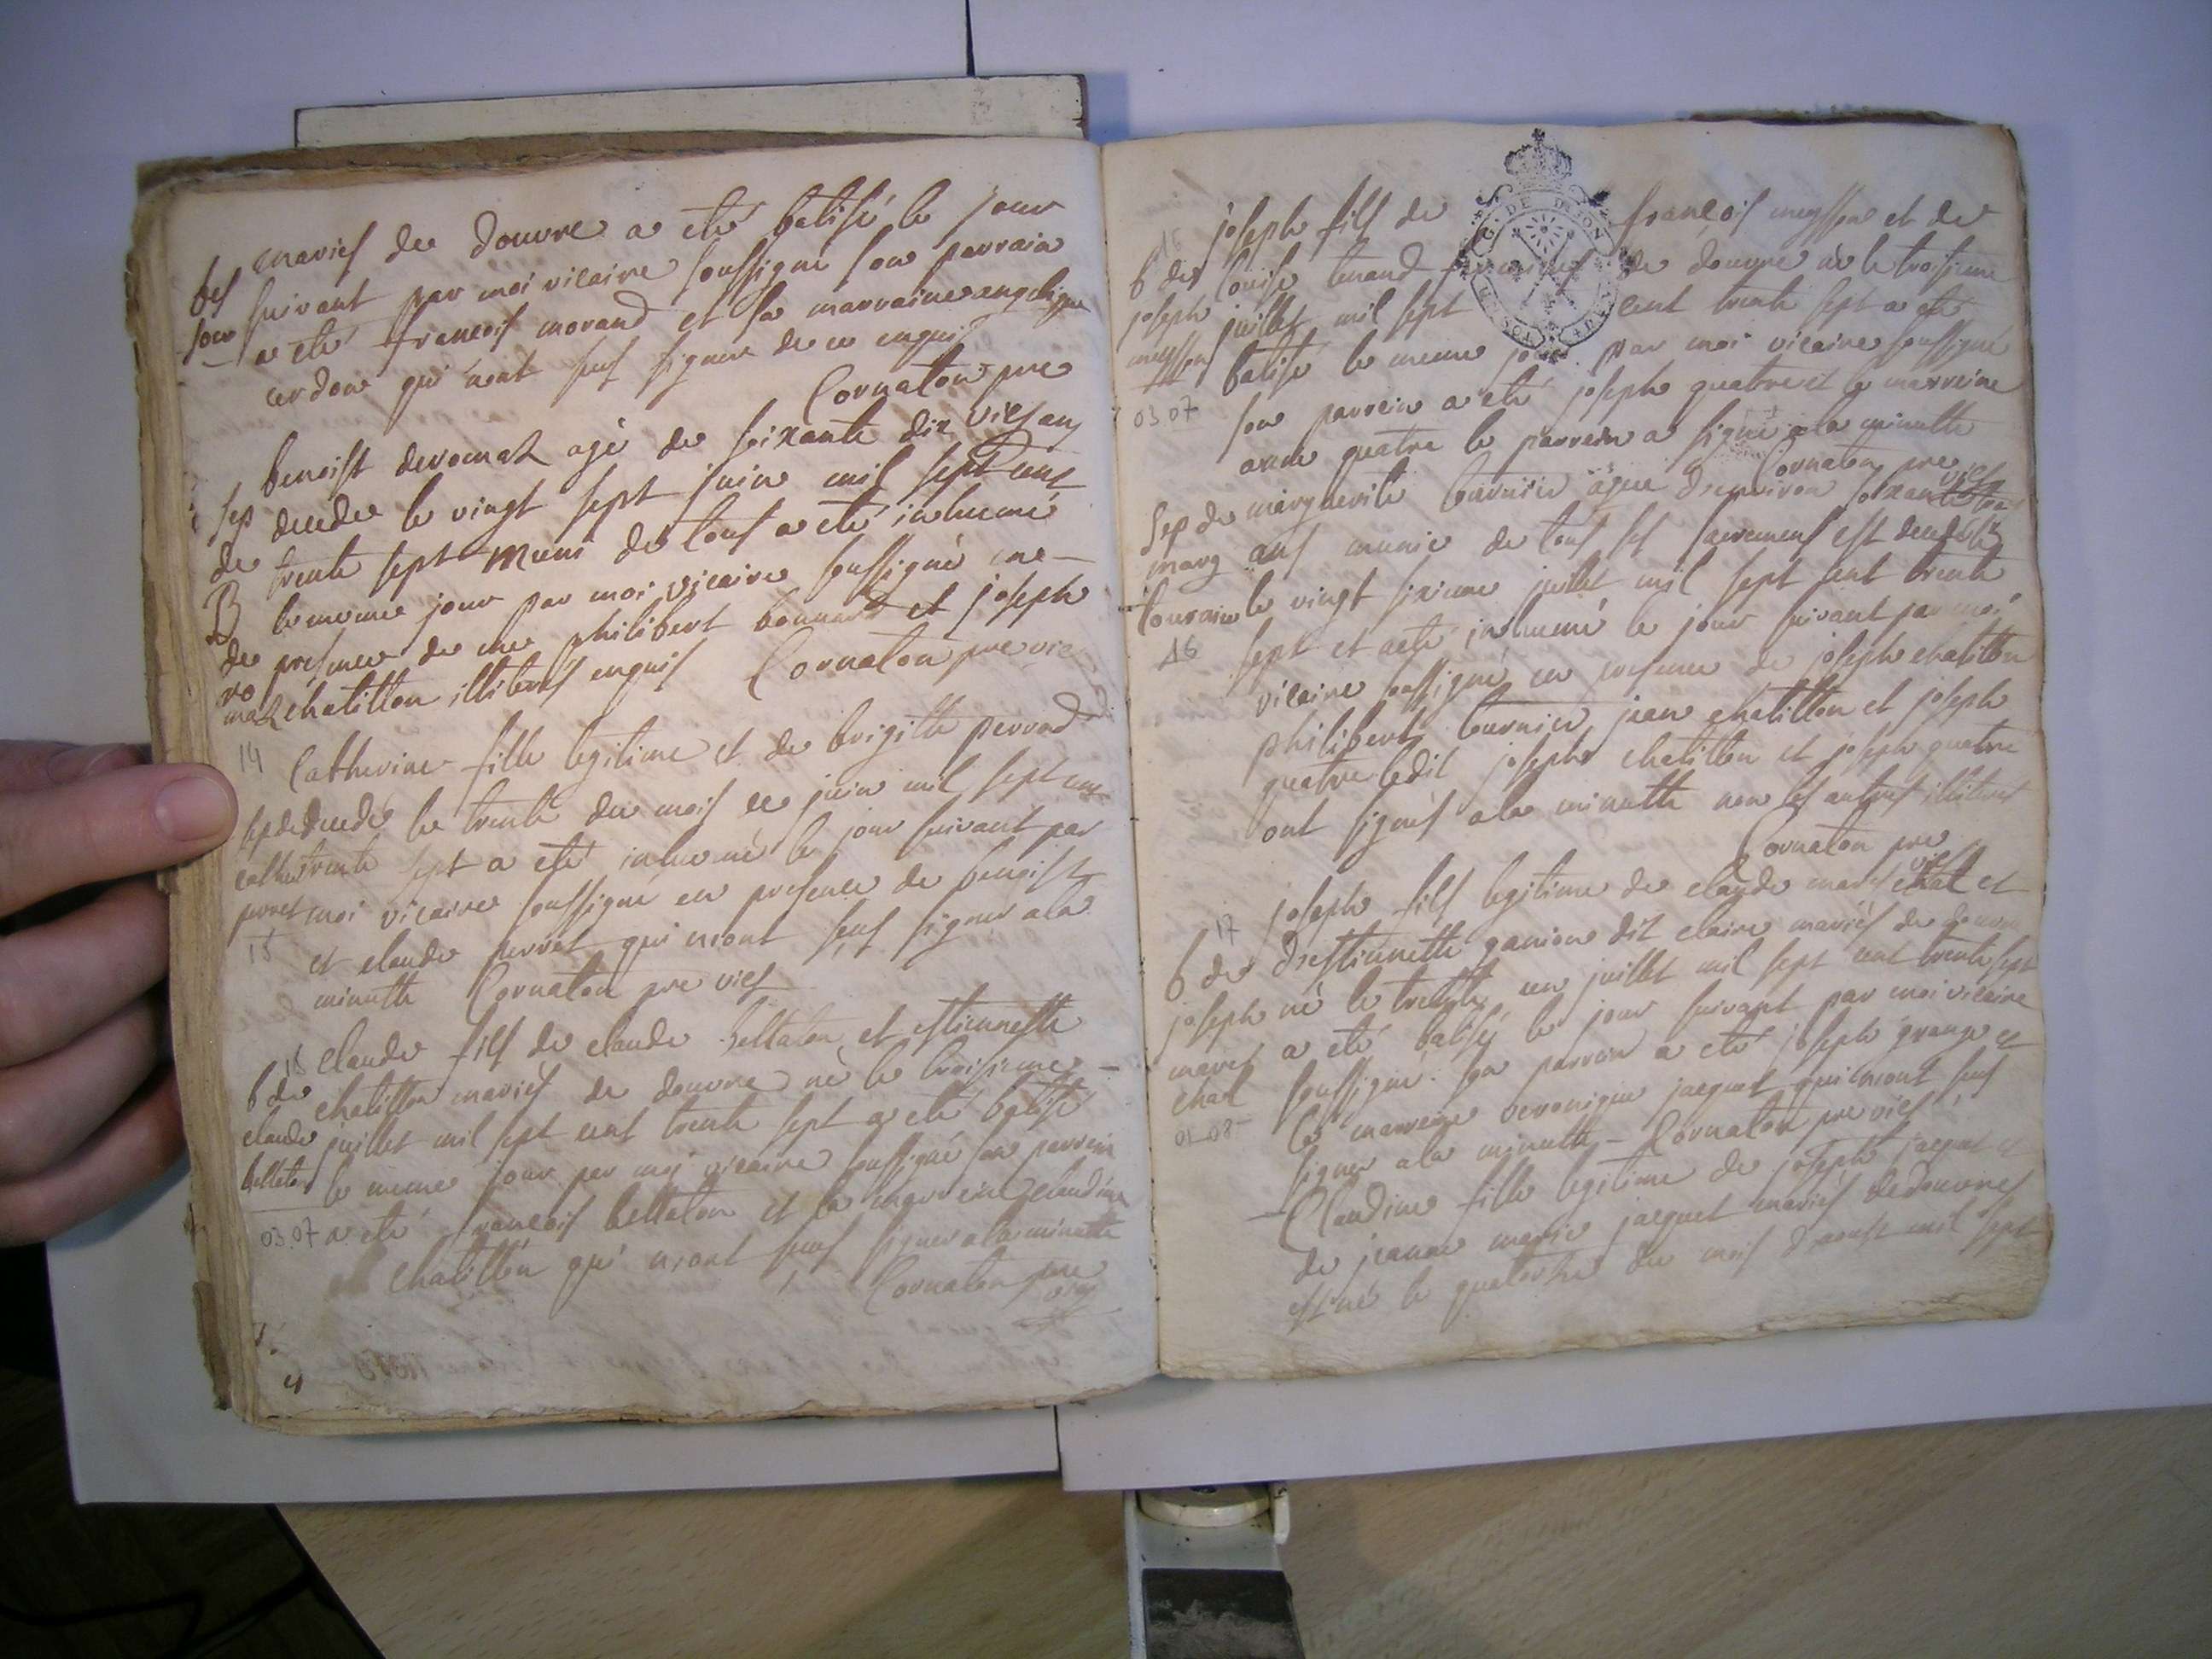 mariés de douvre a eté batisé le jour
suivant par moi vicaire soussigné son parrain
a eté francois morand et sa marraine angelique
cerdon qui n'ont sus signer de ce enquis
Cornaton pre
vics
benoist deromaz agé de soixante dix ans
decedé le vingt sept juin mil sept cent
trente sept muni de tous a eté inhumé
le meme jour par moi vicaire soussigné en
presence de me philibert bonnard et joseph
chatillon illiterés enquis Cornaton pre vic
14
Catherine fille legitime et de brigitte perrod
sep de decedé le trente du mois de juin mil sept cent
cathe trente sept a eté inhumé le jour suivant par
perret moi vicaire soussigné en presence de benoist
15 et claude perret qui n'ont sus signer a la
minutte Cornaton pre vics
claude fils de claude bellaton et estiennette
b de chatillon mariés de douvre né le troisieme
claude juillet mil sept cent trente sept a eté batisé
bellaton le meme jour par moi vicaire soussigné son parrein
03.07 a eté francois bellaton et la marreine claudine
chatillon qui n'ont sus signer a la minutte
Cornaton pre
vics
joseph fils de francois meysson et de
b de louise tenand mariés de douvre né le troisieme
joseph juillet mil sept cent trente sept a eté
meysson batisé le meme jour par moi vicaire soussigné
03 07 son parrein a eté joseph quatre et la marreine
anne quatre le parrein a signé a la minutte
Cornaton pre
vics
sep de marguerite tournier agée d'environ soixante
marg ans munie de tous ses sacremens est decedée
le vingt sixieme juillet mil sept cent trente
16 sept et a eté inhumé le jour suivant par moi
vicaire soussigné en presence de joseph chatillon
philibert tournier jean chatillon et joseph
quatre ledit joseph chatillon et joseph quatre
ont signés a la minutte non les autres illiterés
Cornaton pre
vics
17 joseph fils legitime de claude maret chal et
b de d'estiennette ganion dit claire mariés de douvre
joseph né le trente un juillet mil sept cent trente sept
maret a eté batisé le jour suivant par moi vicaire
chal soussigné son parrein a eté joseph grange et
01-08 la marreine veronique jacquet qui n'ont sus
signer a la minutte - Cornaton pre vics
Claudine fille legitime de joseph jacquet et
de jeanne marie jacquet mariés de douvre
est né le quatorze du mois d'aoust mil sept